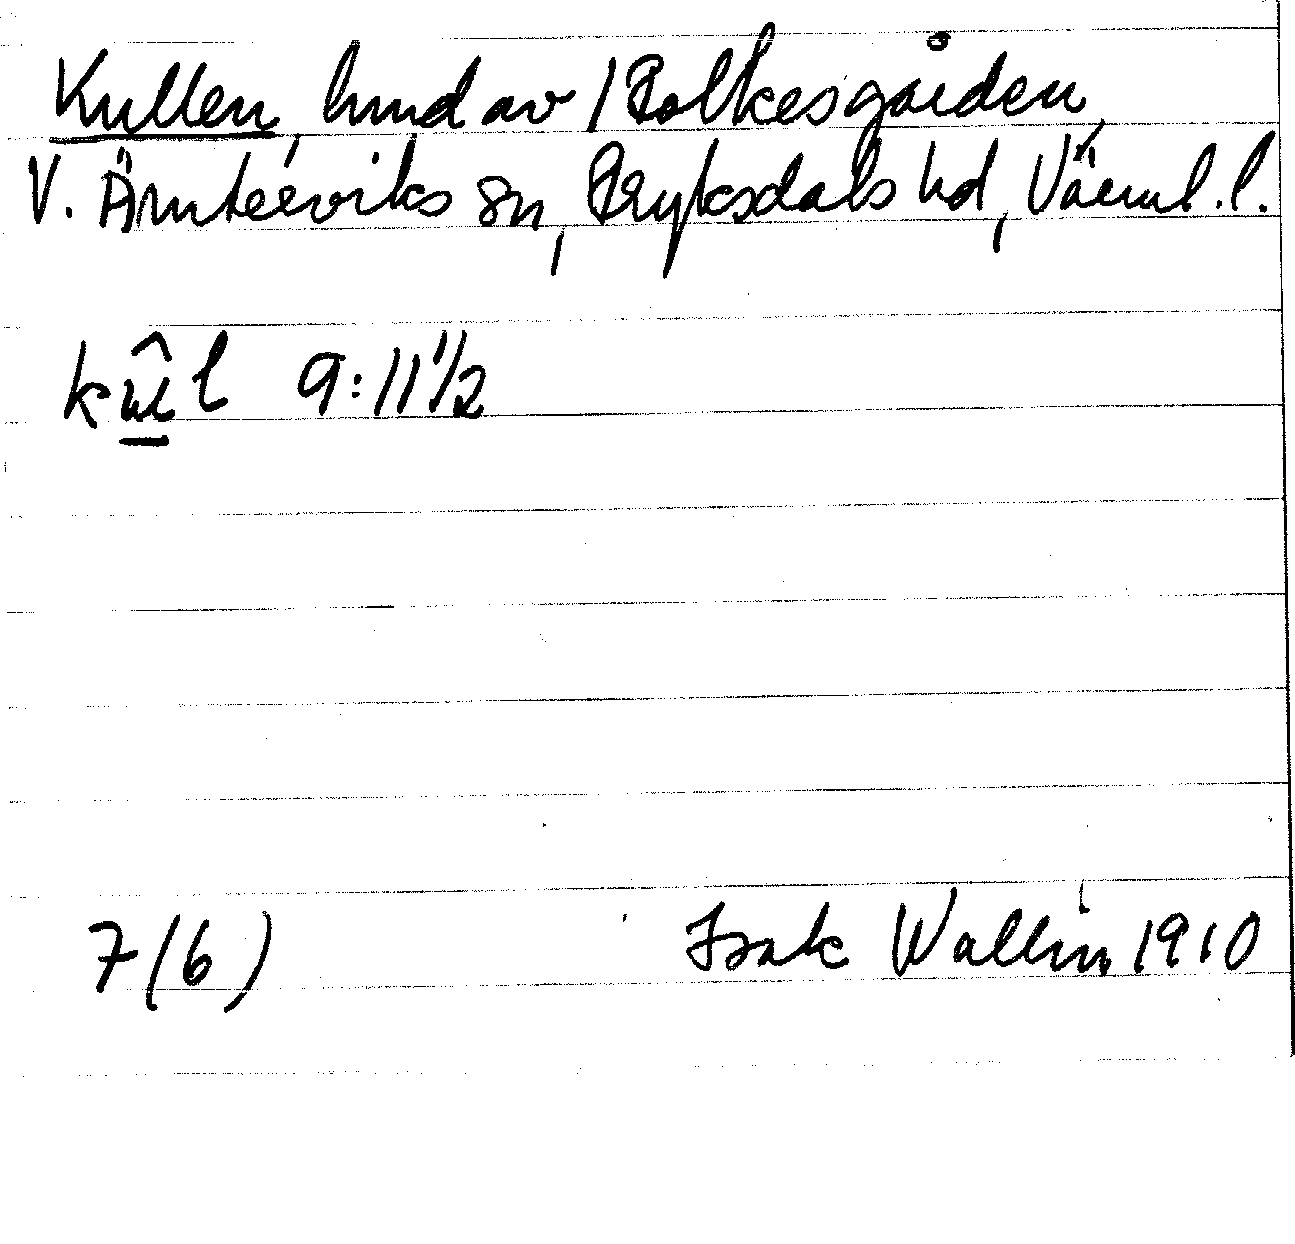 Kullen, hmd av 1 Bolkesgården,
V. Ämterviks sn, Fryksdals hd, Värml. l.
kûl 9:11 1/2
7(6) Isak Wallin, 1910